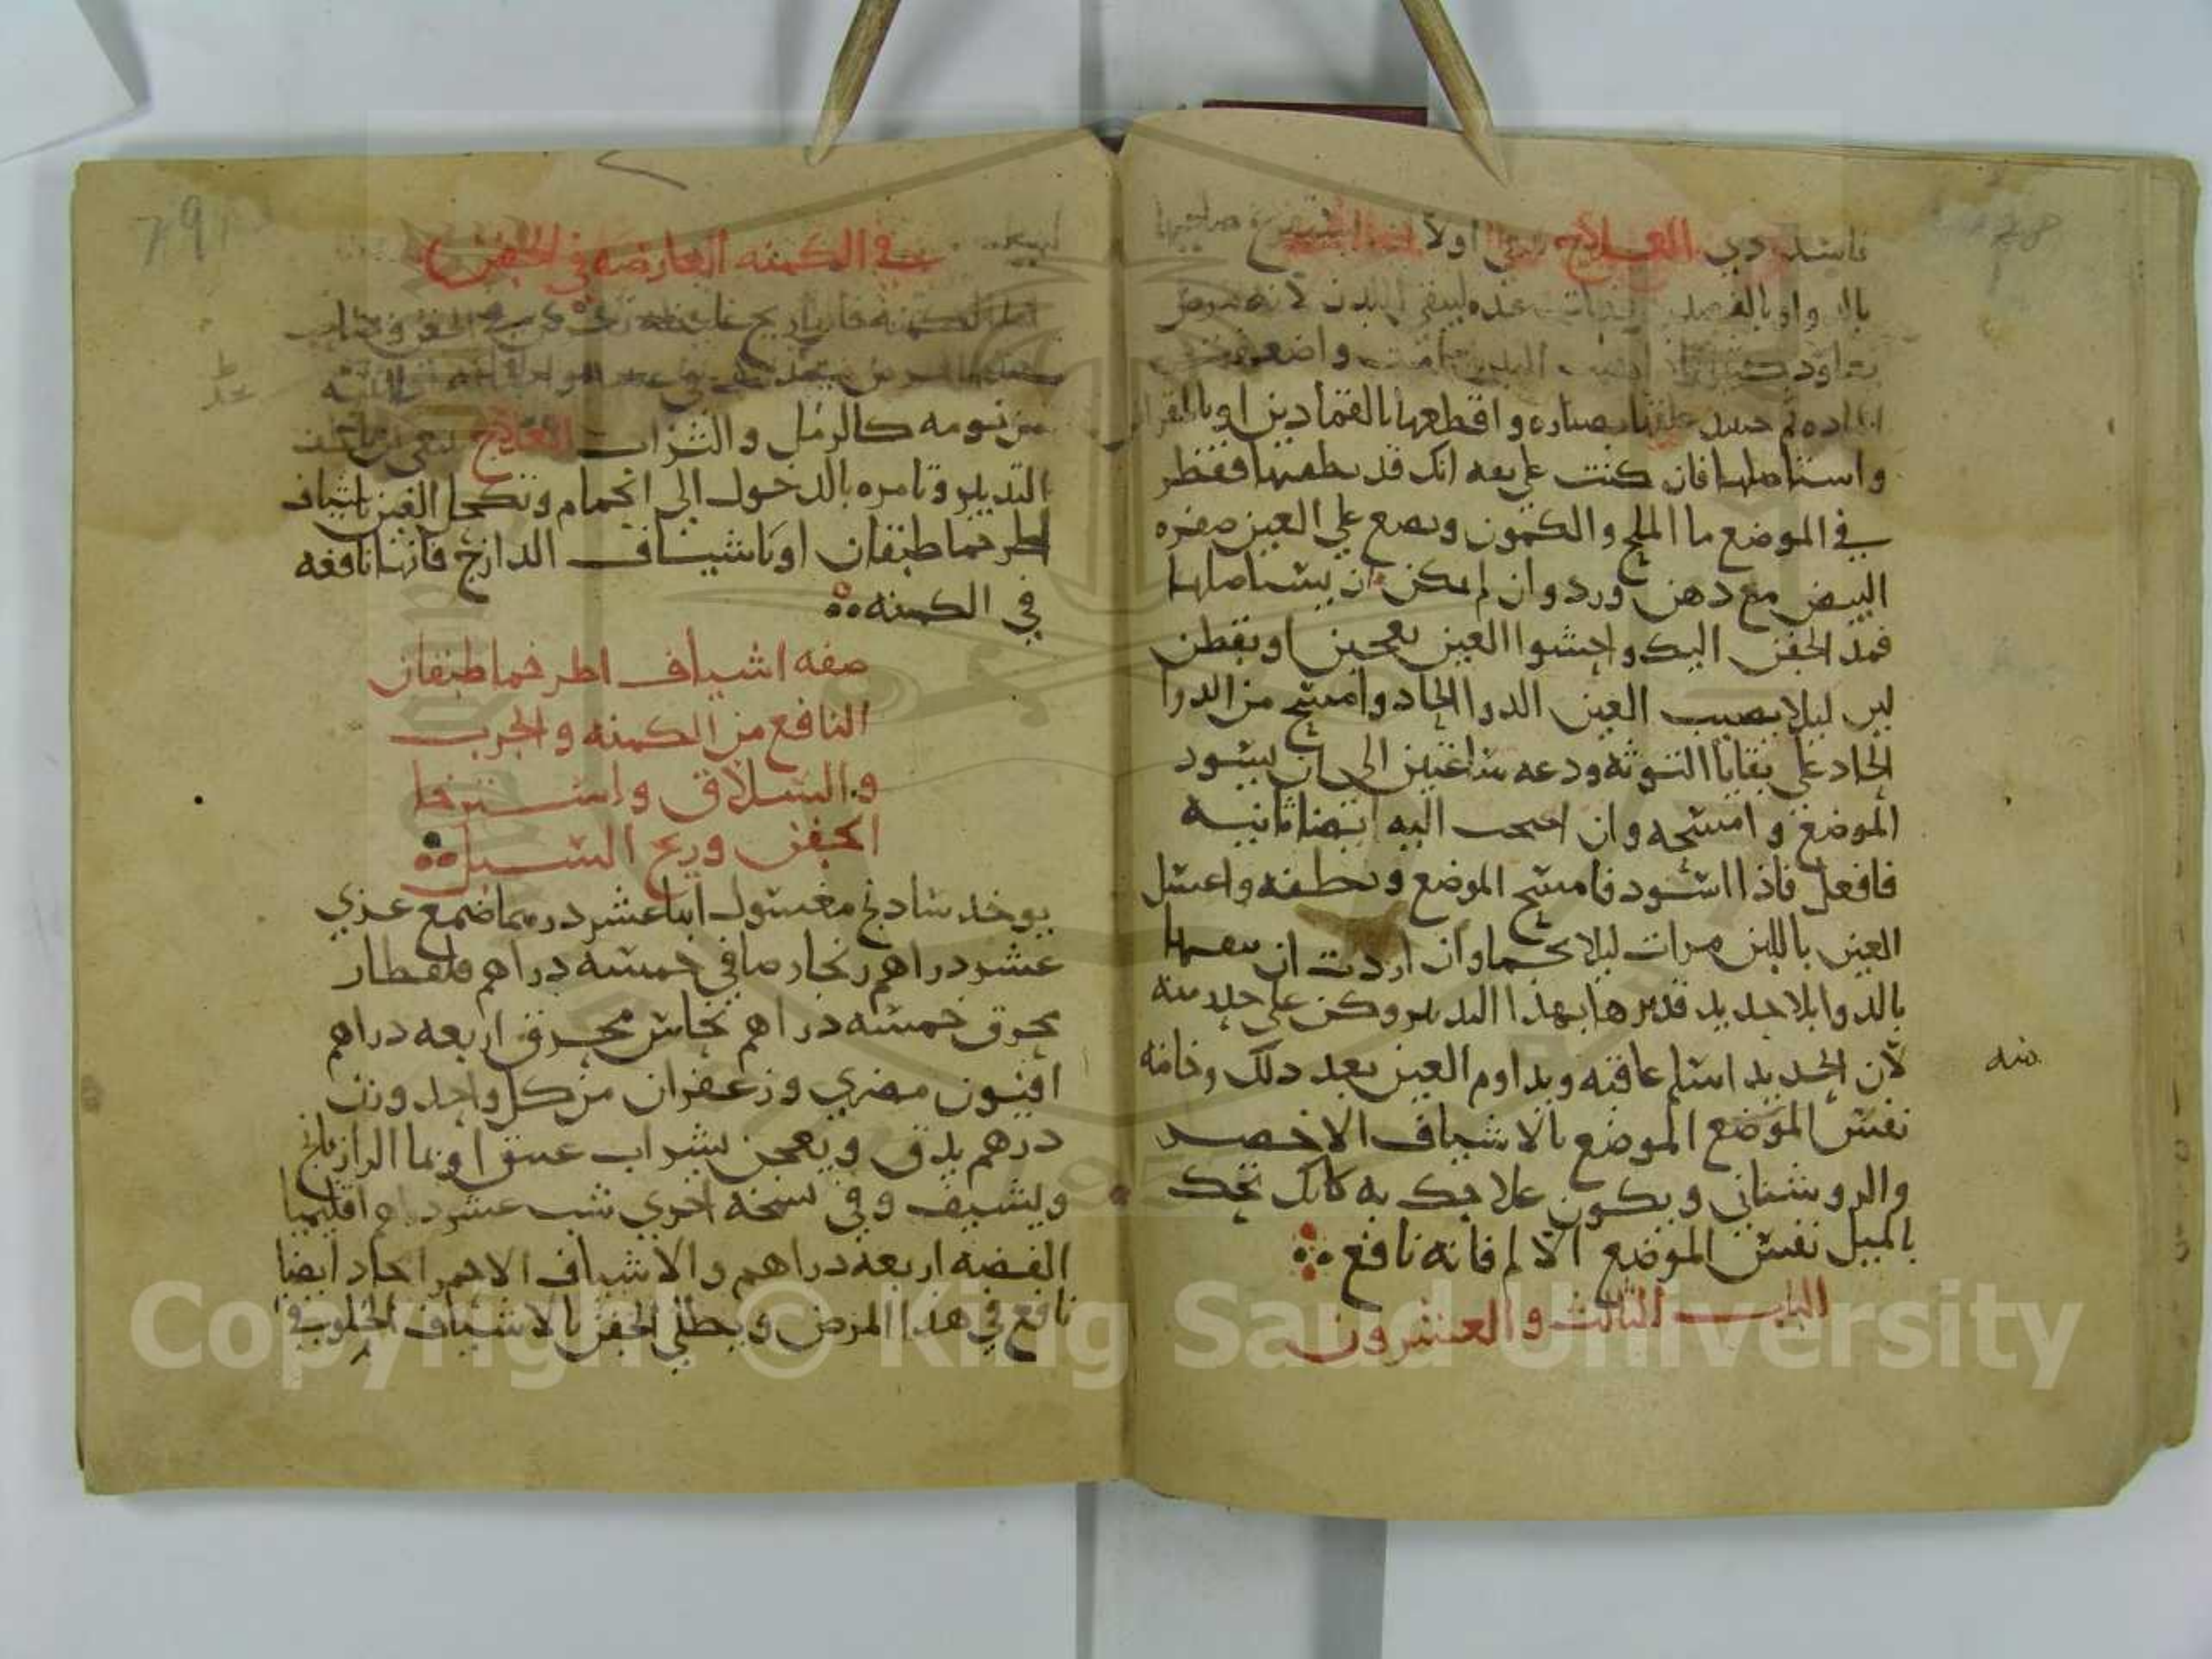 78
فاسد ردي العلاج اولا صاحبها
بالدوا وبالفصد لينقى البدن لانه مرض
يعاود كثيرا واضعف
الماده ثم علقها بصناره واقطعها بالقمادين او بالمقراض
واستاصلها فان كنت علي ثقه انك قد نظفتها فقطر
في الموضع ما الملح والكمون وتضع علي العين صفره
البيض مع دهن ورد وان لم يمكن ان يستاصلها
فمد الجفن اليك واحشوا العين بعجين او بقطن
لين ليلا يصيب العين الدوا الحاد وامسح من الدوا
الحاد علي بقايا التوته ودعه ساعتين الى ان يسود
الموضع وامسحه وان احتجت اليه ايضا ثانيه
فافعل فاذا اسود فامسح الموضع ونظفه واغسل
العين باللبن مرات ليلا تحما وان اردت ان
بالدوا بلا حديد فدبرها بهذا التدبير وكن علي حذر منه
لان الحديد اسلم عاقبه ويداوم العين بعد ذلك وخاصه
نفس الموضع الموضع بالاشياف الاخضر
والروشناي ويكون علاجك به كانك تحك
بالميل نفس الموضع الالم فانه نافع
الباب الثالث والعشرون
79
في الكمنه العارضه في الجفن
اما الكمنه فان ريح غليظه تحدث في الجفن وصاحب
من نومه كالرمل والتراب العلاج
التدبير وتامره بالدخول الى الحمام وتكحل العين باشياف
اطرخماطيقان او باشياف الدارج فانها نافعه
في الكمنه
صفه اشياف اطرخماطيقان
النافع من الكمنه والجرب
والسلاق واسترخا
الجفن وريح السبل
يوخذ شادنج مغسول اثنا عشر درهما صمغ عربي
عشر دراهم زنجار صافي خمسه دراهم قلقطار
محرق خمسه دراهم نحاس محرق اربعه دراهم
افيون مصري وزعفران من كل واحد وزن
درهم يدق ويعجن بشراب عتيق او بما الرازيانج
ويشيف وفي نسخه اخري شب عشر دراهم اقليميا
الفضه اربعه دراهم والاشياف الاحمر الحاد ايضا
نافع في هذا المرض ويطلي الجفن بالاشياف الخلوب في
Copyright © King Saud University